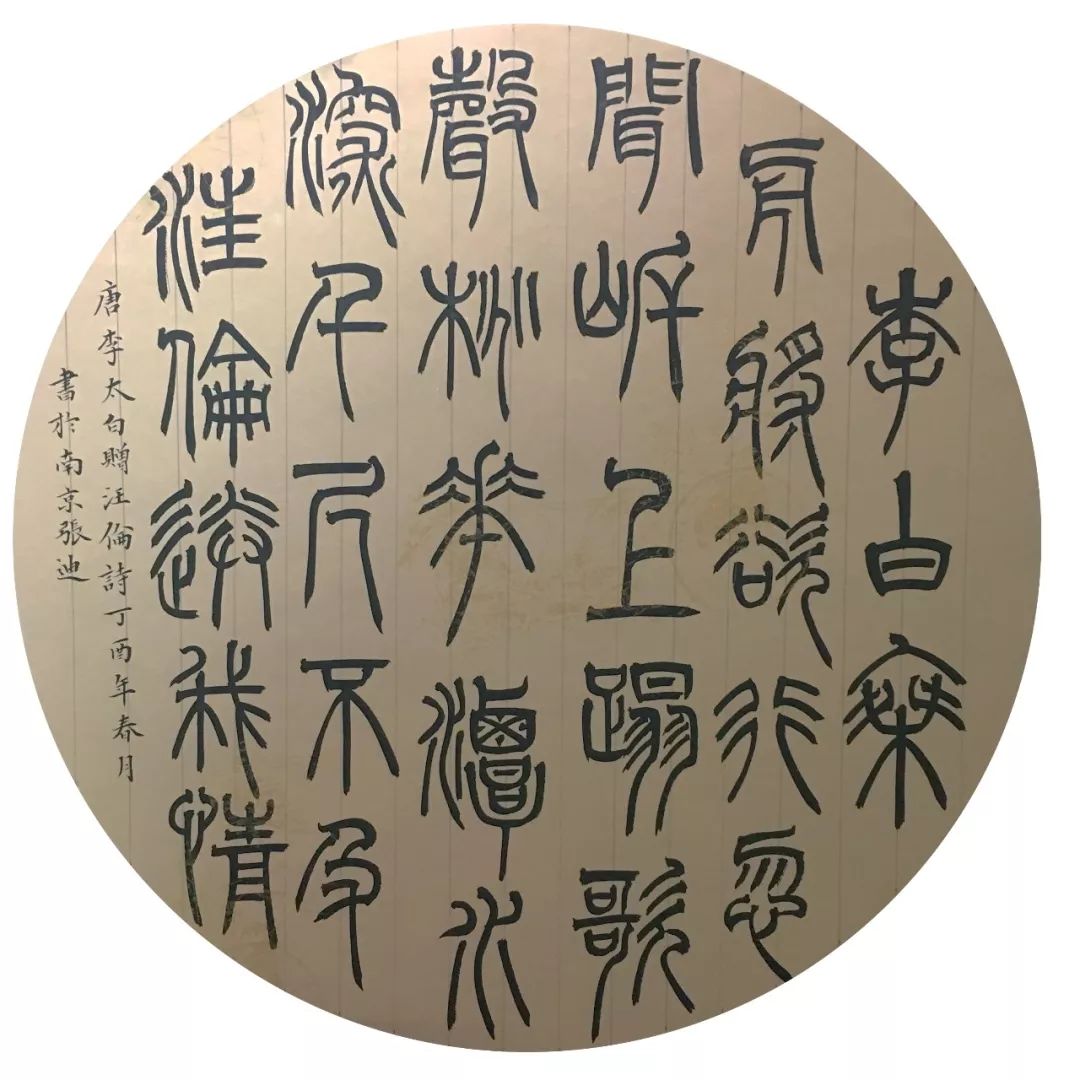 李白乘
舟將欲行忽
聞岸上踏歌
聲桃花潭水
深千尺不及
汪倫送我情
唐李太白贈汪倫詩丁酉年春月
書於南京張迪